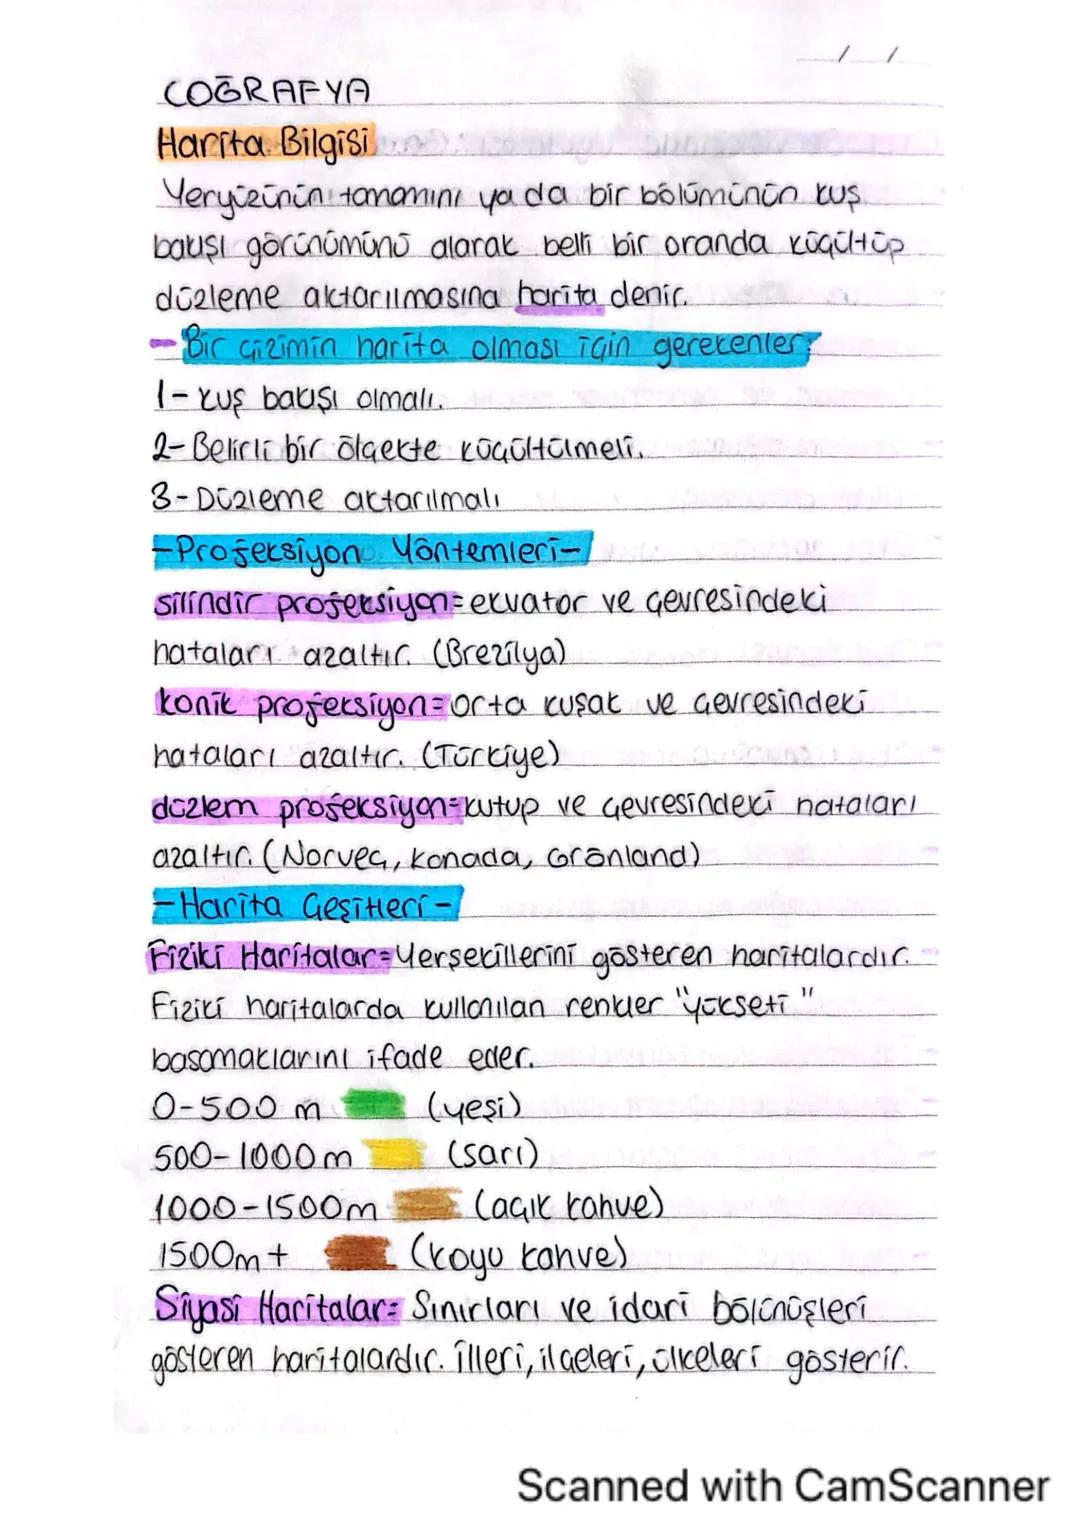 COĞRAFYA
Harita Bilgisi
Yeryüzünün tamamını ya da bir bölümünün kuş
bakışı görünümünü alarak belli bir oranda küçültüp
düzleme aktarılmasına harita denir.
- Bir çizimin harita olması için gerekenler:
1- Kuş bakışı olmalı.
2- Belirli bir ölçekte küçültülmeli.
3- Düzleme aktarılmalı
-Projeksiyon Yöntemleri-
silindir projeksiyon= ekvator ve çevresindeki
hataları azaltır. (Brezilya)
konik projeksiyon= orta kuşak ve çevresindeki
hataları azaltır. (Türkiye)
düzlem projeksiyon= kutup ve çevresindeki hataları
azaltır. (Norveç, Kanada, Grönland)
-Harita Çeşitleri-
Fiziki Haritalar= Yerşekillerini gösteren haritalardır.
Fiziki haritalarda kullanılan renkler "yükseti"
basamaklarını ifade eder.
0-500 m (yeşi)
500-1000m (sarı)
1000-1500m (açık kahve)
1500m+ (koyu kahve)
Siyasi Haritalar= Sınırları ve idari bölünüşleri
gösteren haritalardır. İlleri, ilçeleri, ülkeleri gösterir.
Scanned with CamScanner